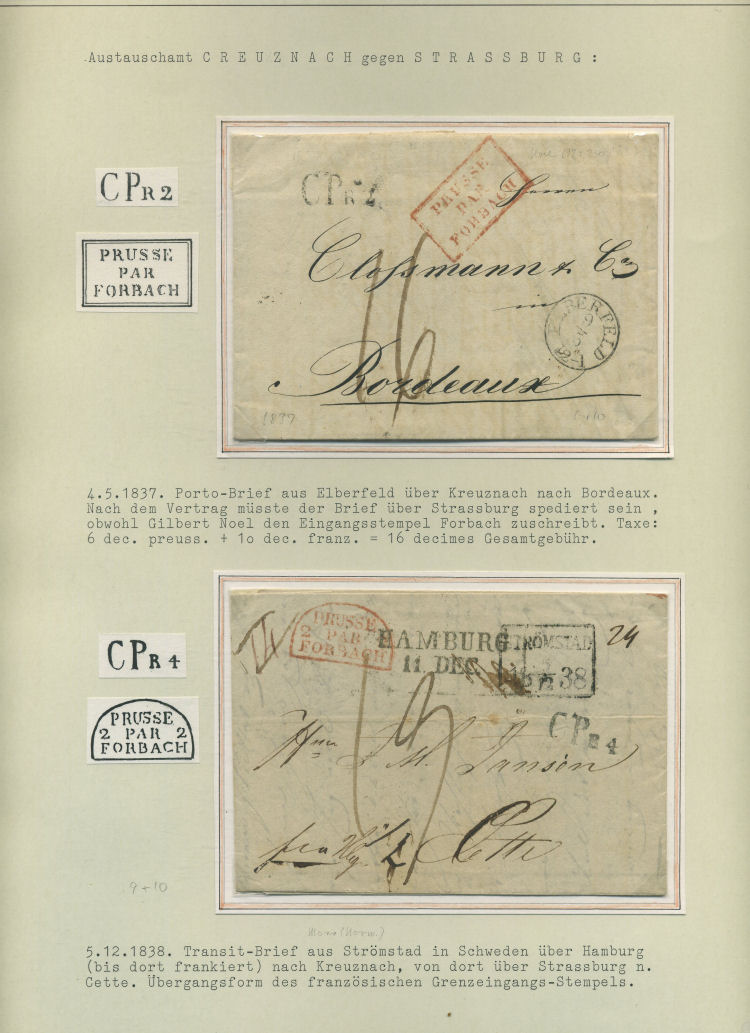 Austauschamt C R E U Z N A C H gegen S T R A S S B U R G :
CPR2
PRUSSE
PAR
FORBACH
CPR2
PRUSSE
PAR
FORBACH
Herren
Clossmann & Co
in
ELBERFELD
Bordeaux
16
1837
4.5.1837. Porto-Brief aus Elberfeld über Kreuznach nach Bordeaux.
Nach dem Vertrag müsste der Brief über Strassburg spediert sein ,
obwohl Gilbert Noel den Eingangsstempel Forbach zuschreibt. Taxe:
6 dec. preuss. + 1o dec. franz. = 16 decimes Gesamtgebühr.
CPR4
PRUSSE
2 PAR 2
FORBACH
PRUSSE
2 PAR 2
FORBACH
HAMBURG
11 DEC
STRÖMSTAD
12 38
24
CPR4
19
Cette
9+10
5.12.1838. Transit-Brief aus Strömstad in Schweden über Hamburg
(bis dort frankiert) nach Kreuznach, von dort über Strassburg n.
Cette. Übergangsform des französischen Grenzeingangs-Stempels.